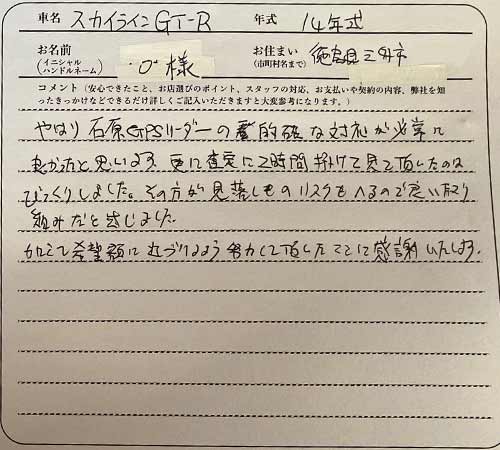 車名 スカイラインGT-R 年式 14年式
お名前 (イニシャル ハンドルネーム) "O"様 お住まい (市町村名まで) 徳島県三好市
コメント(安心できたこと、お店選びのポイント、スタッフの対応、お支払いや契約の内容、弊社を知
ったきっかけなどできるだけ詳しくご記入いただきますと大変参考になります。)
やはり石原GPSリーダーの的確な対応が非常に
良かったと思います。更に査定に2時間掛けて見て頂いたのは
びっくりしました。その方が見落しものリスクもへるので良い取り
組みだと感じました。
加えて希望額に近づけるよう努力して頂したことに感謝いたします。